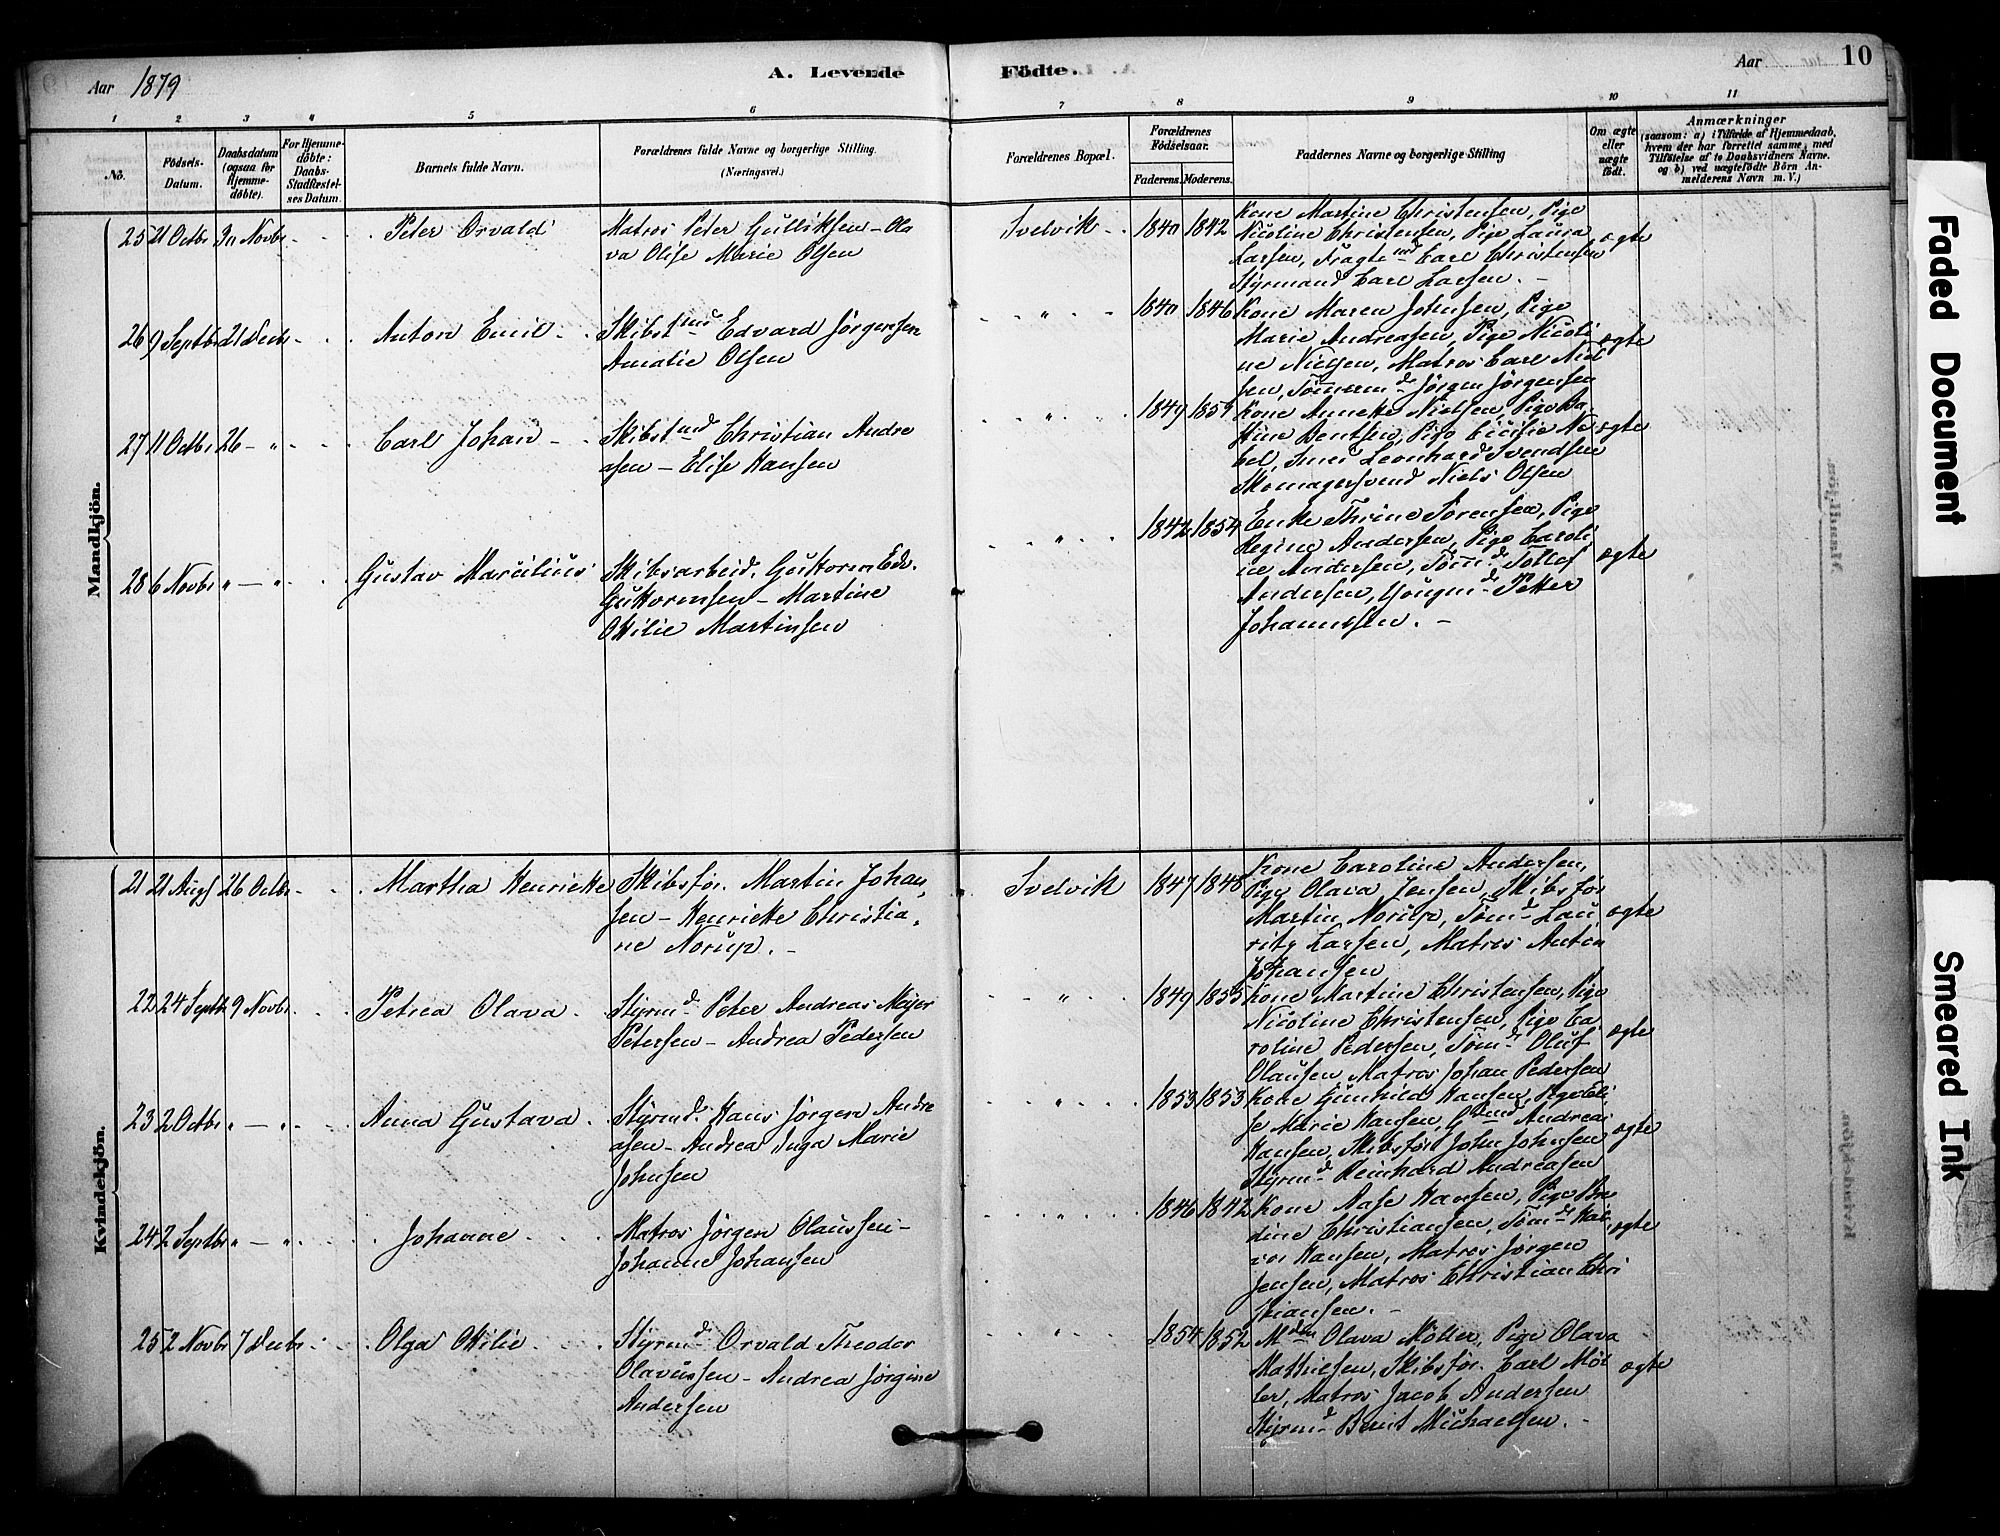 Aar 1879
A. Levende Födte.
Aar
10
1 2 3 4 5 6 7 8 9 10 11
No.
Födsels-Datum.
Daabsdatum (ogsaa for Hjemmedöbte).
For Hjemmedöbte: Daabs-Stadfæstelses Datum.
Barnets fulde Navn.
Forældrenes fulde Navne og borgerlige Stilling. (Næringsvei.)
Forældrenes Bopæl.
Forældrenes Födselsaar.
Faderens. Moderens.
Faddernes Navne og borgerlige Stilling
Om ægte eller uægte födt.
Anmærkninger (saasom: a) i Tilfælde af Hjemmedaab, hvem der har forrettet samme, med Tilföielse af to Daabsvidners Navne, og b) ved uægtefödte Börn Anmelderens Navn m. V.)
Mandkjön.
25 21 Octbr Novbr Peter Orvald
Matros Peter Gulliksen - Ola
va Olise Marie Olsen
Svelvik 1840 1842
Kone Martine Christensen, Pige
Nicoline Christensen, Pige Laura
Larsen, Fragtemd Carl Christensen
Styrmand Carl Larsen. -
ægte
26 9 Septbr 21 Decbr Anton Emil
Skibstmd Edvard Jörgensen
Amalie Olsen
" 1840 1846
Kone Maren Johnsen, Pige
Marie Andreasen, Pige Nicoli
ne Nielsen, Matros Carl Niel
sen, Tömmermd Jörgen Jörgensen
ægte
27 11 Octbr 26 - " - Carl Johan
Skibstmd Christian Andre
asen - Elise Hansen
" 1849
Kone Annette Nielsen, Pige
Berntsen, Pige Cicilie Ne
bel, Smed Leonhard Svendsen
Skomagersvend Niels Olsen
ægte
28 6 Novbr " - " Gustav Marcilius
Skibsarbeid. Guttorm Edv.
Guttormsen - Martine
Otilie Martinsen
" 1842 1854
Enke Thrine Sorensen, Pige
Regine Andersen, Pige Caroli
ne Andersen, Tömd Tollef
Andersen, Petter
Johannesen. -
ægte
Kvindekjön.
21 21 Augs 26 Octbr Martha Henriette
Skibsför. Martin Johan,
sen - Henriette Christia,
ne Norup. -
Svelvik 1847 1848
Kone Caroline Andersen,
Pige Olava Jensen, Skibsför
Martin Norup, Tömd Lau
ritz Larsen, Matros Anton
Johansen
ægte
22 24 Septbr 9 Novbr Petrea Olava
Styrmd Peter Andreas Meyer
Petersen - Andrea Pedersen
" 1849 1855
Kone Martine Christensen, Pige
Nicoline Christensen, Pige Ca
roline Pedersen, Tömd Oluf
Olausen Matros Johan Pedersen
ægte
23 2 Octbr " - " Anna Gustava
Styrmd. Hans Jörgen Andre
asen - Andrea Inga Marie
Johnsen
" 1853 1853
Kone Gunhild Hansen, Pige Eli
se Marie Hansen, Andreas
Hansen, Skibsför John Johnsen
Styrmd Reinhard Andreasen
ægte
24 2 Septbr " - " Johanne
Matros Jörgen Olaussen -
Johanne Johansen
" 1846 1842
Kone Aase Hansen, Pige Bre
dine Christiansen, Tömd Hal
vor Hansen, Matros Jörgen
Jensen, Matros Christian Chri
stiansen. -
ægte
25 2 Novbr 7 Decbr Olga Otilie
Styrmd Orvald Theodor
Olavussen - Andrea Jörgine
Andersen
" 1854 1852
Mdm Olava Möller, Pige Olava
Mathiesen, Skibsför. Carl Möl
ler, Matros Jacob Andersen
Styrmd Bernt Michaelsen. -
ægte
Faded Document
Smeared Ink